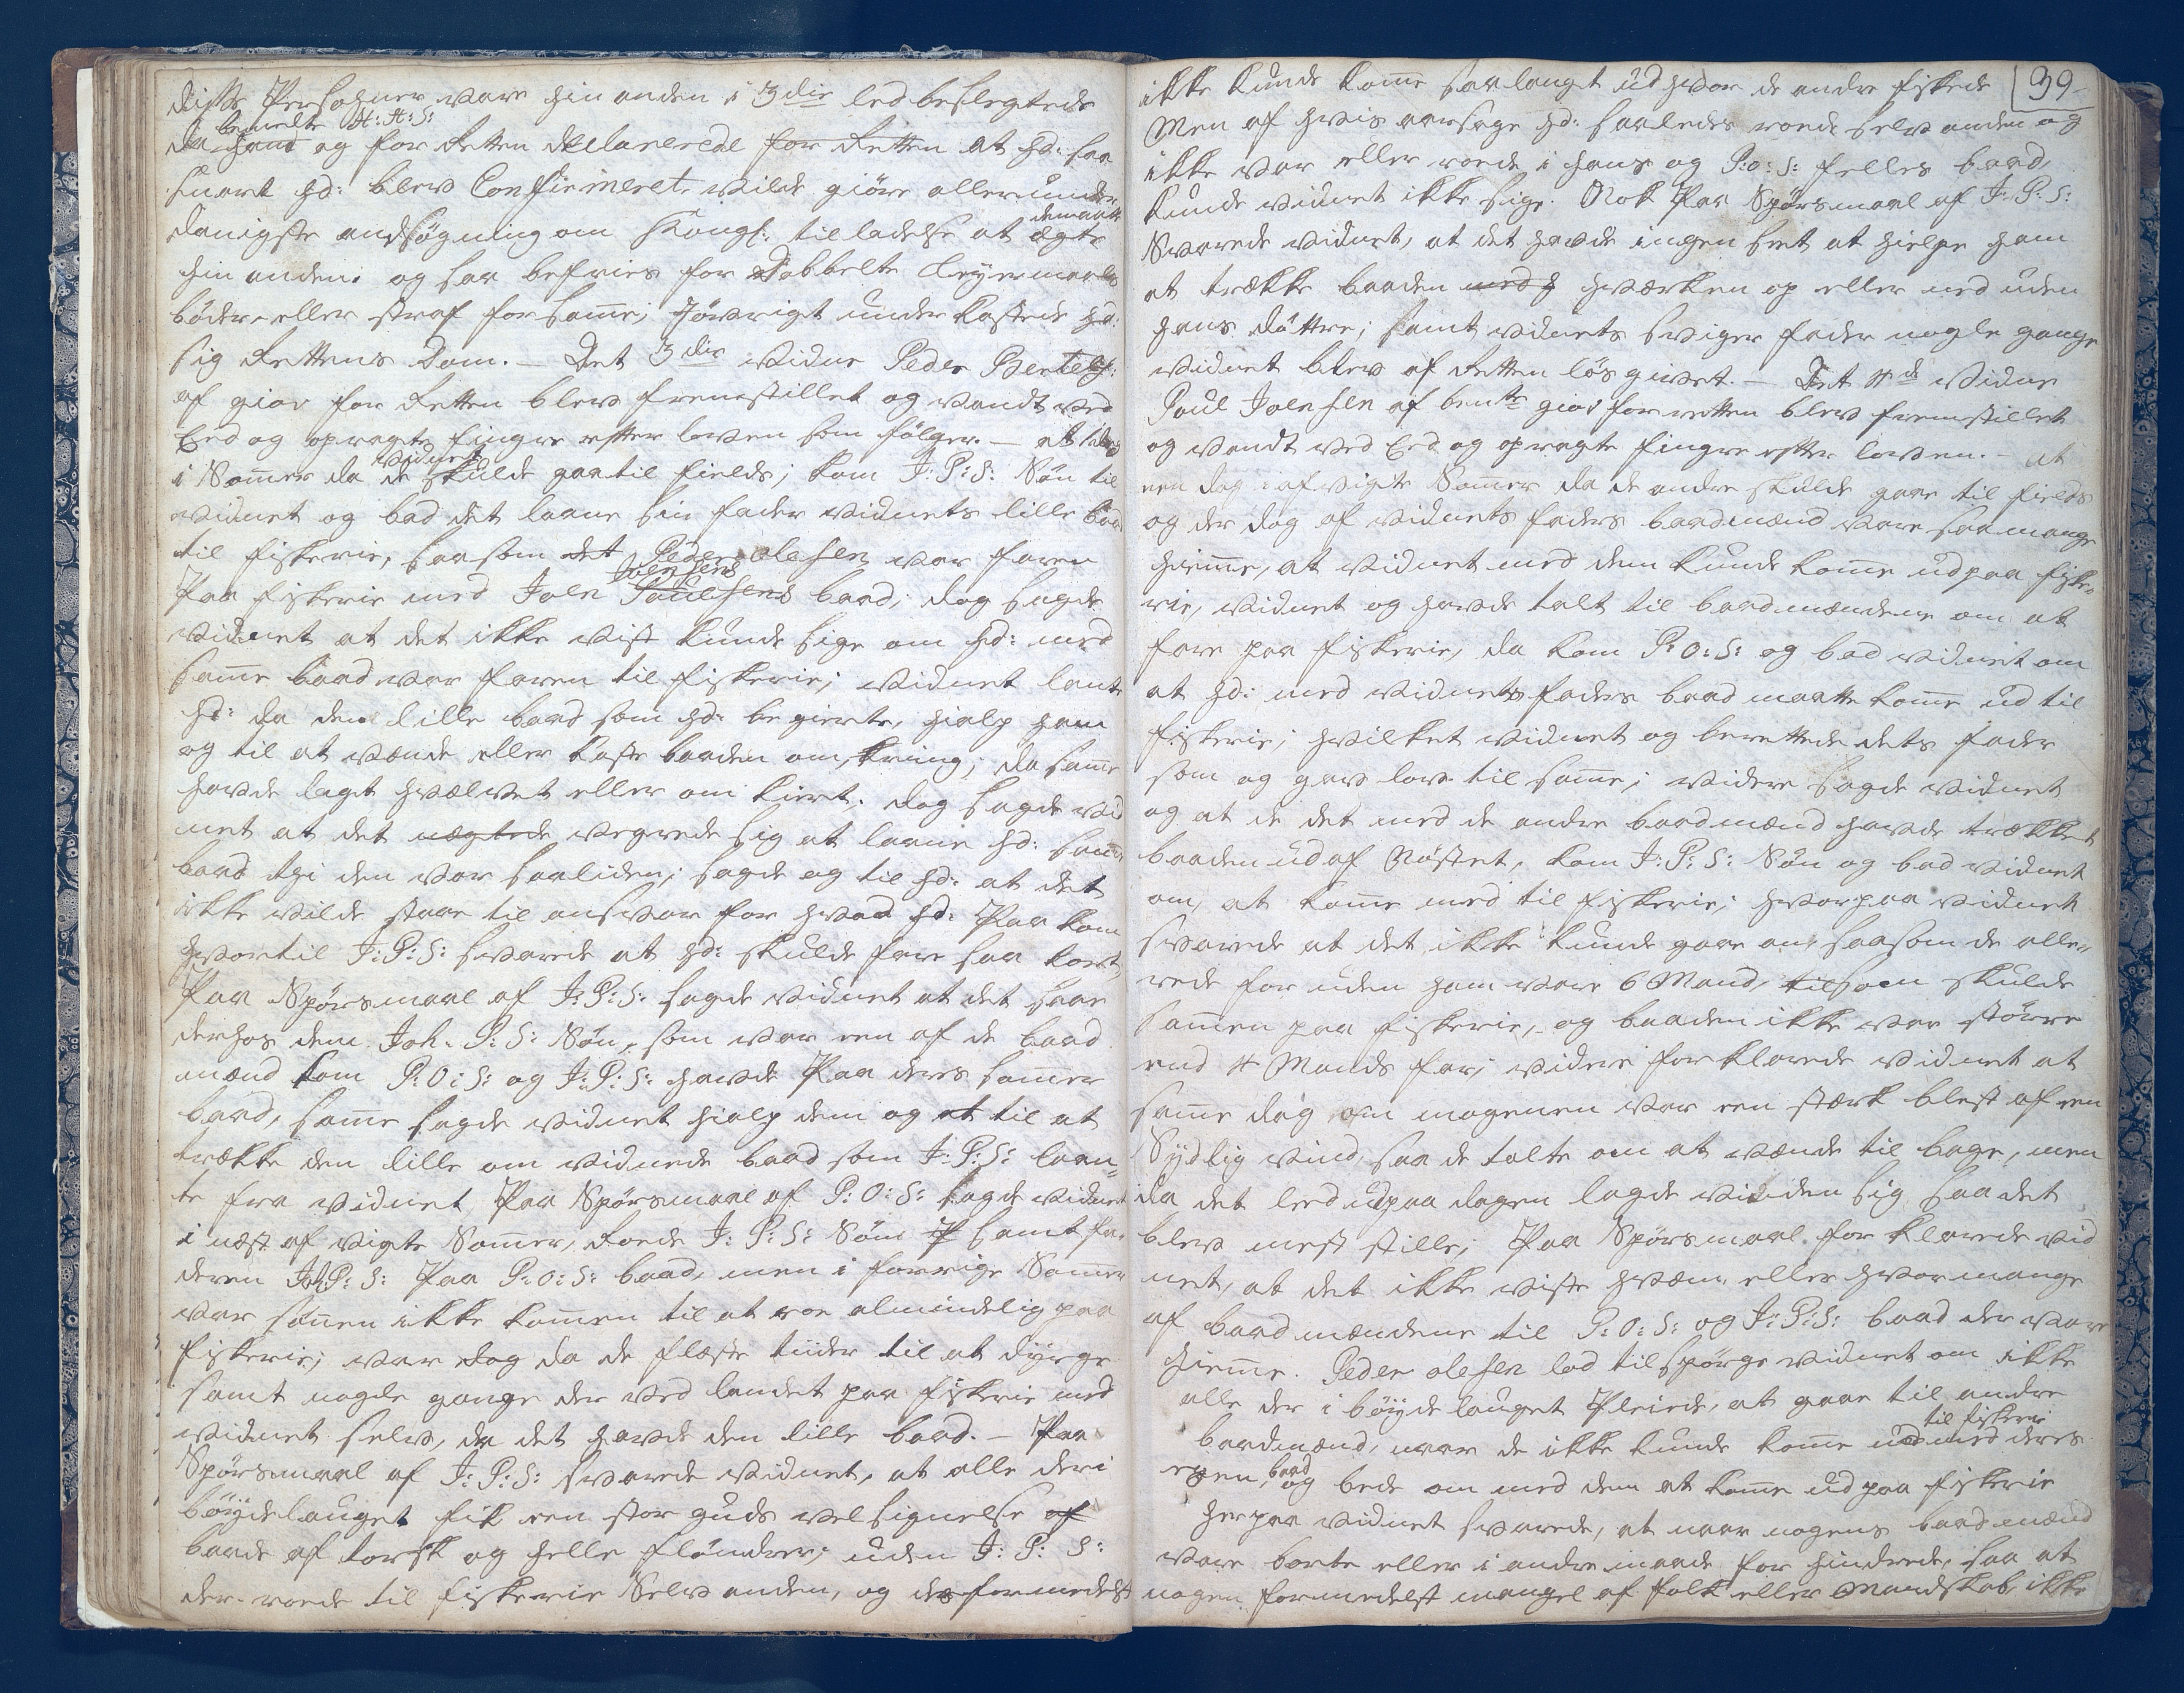 disse Personer vare hin anden i 3die led beslegtede
da hand bemelte H: H: S: og for Retten declarerede for Retten at hd: saa
snart hd: blev Confirmeret, vilde giöre allerunder
danigste ansögning om Kongl: tilladelse at demaatte ægte
hin anden. og saa befries for Dobbelte Leyermaals
böder eller straf for same; Iövrigt underkastede hd:
sig Rettens Dom. — Det 3die Vidne Peder Bertelsf:
af giov for Retten blev fremstillet og vandt ved
Eed og opragte fingre efter loven som fölger. — at
i Somer da de vidnet skulde gaa til fields; kom J: P: S: Sön til
vidnet og bad det laane sin fader vidnets lille baad
til fiskerie, saasom det Peder olesen var faren
Paa fiskerie med Joen Poulsens Joensens baad; dog sagde
vidnet at det ikke vist kunde sige om hd: med
same baad var faren til fiskerie; vidnet laante
hd: da den lille baad som hd: begierte, hialp ham
og til at vænde eller kaste baaden omkring; da same
havde lagt hvælvet eller om kiert. dog sagde vid
net at det nægtede vegrede sig at laane hd: same
baad thi den var saa liden; sagde og til hd: at det
ikke vilde staae til ansvar for hvad hd: Paa kom
hvortil J: P: S: svarede at hd: skulde fare saa kort,
Paa Spörsmaal af J: P: S: sagde vidnet at det saae
derhos dem Joh. P: S: Sön, som var een af de baad
mænd som P: O: S: og J: P: S: havde Paa deres somer
baad, same sagde vidnet hialp dem og at til at
trække den lille om vidnede baad som J: P: S: laan„
te fra vidnet, Paa Spörsmaal af P: O: S: sagde vidnet
i næst af vigte Somer, Roede J: P: S: Sön P samt fa„
deren J: P: S: Paa P: O: S: baad, men i forrige Somer
var sönnen ikke komen til at roe almindelig paa
fiskerie; var dog da de flæste tiider til at dyrge
samt nogle gange der ved landet paa fiskerie med
vidnet selv, da det havde den lille baad. — Paa
Spörsmaal af J: P: S: svarede vidnet, at alle der i
böygdelauget fik een stor guds velsignelse af
baade af torsk og helle flöndrer; uden J: P: S:
der roede til fiskerie Selv anden, og derformedelst
39
ikke kunde kome saa langt ud hvor de andre fiskede
Men af hvis aarsage hd: saaledes roede selv anden og
ikke var eller roede i hans og P: O: S: felles baad,
kunde vidnet ikke sige. Nok Paa Spörsmaal af J: P: S:
Svarede vidnet, at det havde ingen seet at hielpe ham
at trække baaden med h hværken op eller ned uden
hans döttre; samt vidnets sviger fader nogle gange
vidnet blev af Retten lös givet. — Det 4de Vidne
Poul Joensen af bente giov for retten blev fremstillet
og vandt ved Eed og opragte fingre efter loven. — at
een dag i afvigte Somer da de andre skulde gaae til fields
og der dog af vidnets faders baadmænd vare saa mange
hieme, at vidnet med dem kunde kome ud paa fiske„
rie, vidnet og havde talt til baadmændene om at
fare paa fiskerie, da kom P: O: S: og bad vidnet om
at hd: med vidnets faders baad maatte kome ud til
fiskerie; hvilket vidnet og berettede dets fader
som og gav lov til same; videre sagde vidnet
og at de det med de andre baadmænd havde trækket
baaden ud af Nöstet, kom J: P: S: Sön og bad vidnet
om, at kome med til fiskerie; hvorpaa vidnet
svarede at det ikke kunde gaae an, saasom de alle„
rede for uden ham vare 6 Mand, til som skulde
samen paa fiskerie, og baaden ikke var större
end 4 Mands far; videre forklarede vidnet at
same dag om morgenen var een stærk blest af een
Sydlig vind, saa de talte om at vænde til bage, men
da det leed udpaa dagen lagde vinden sig, saa det
blev mest stille; Paa Spörsmaal forklarede vid
net, at det ikke viste hvem eller hvor mange
af baadmændene til P: O: S: og J: P: S: baad der vare
hieme. Peder olesen lod tilspörge vidnet om ikke
alle der i böygdelauget Pleiede, at gaae til andre
baadmænd, naar de ikke kunde kome ud til fiskerie med deres
egen baad, og bede om med dem at kome ud paa fiskerie
herpaa vidnet svarede, at naar nogens baadmænd
vare borte eller i andre maade forhindrede, saa at
nogen formedelst mangel af folk eller Mandskab ikke